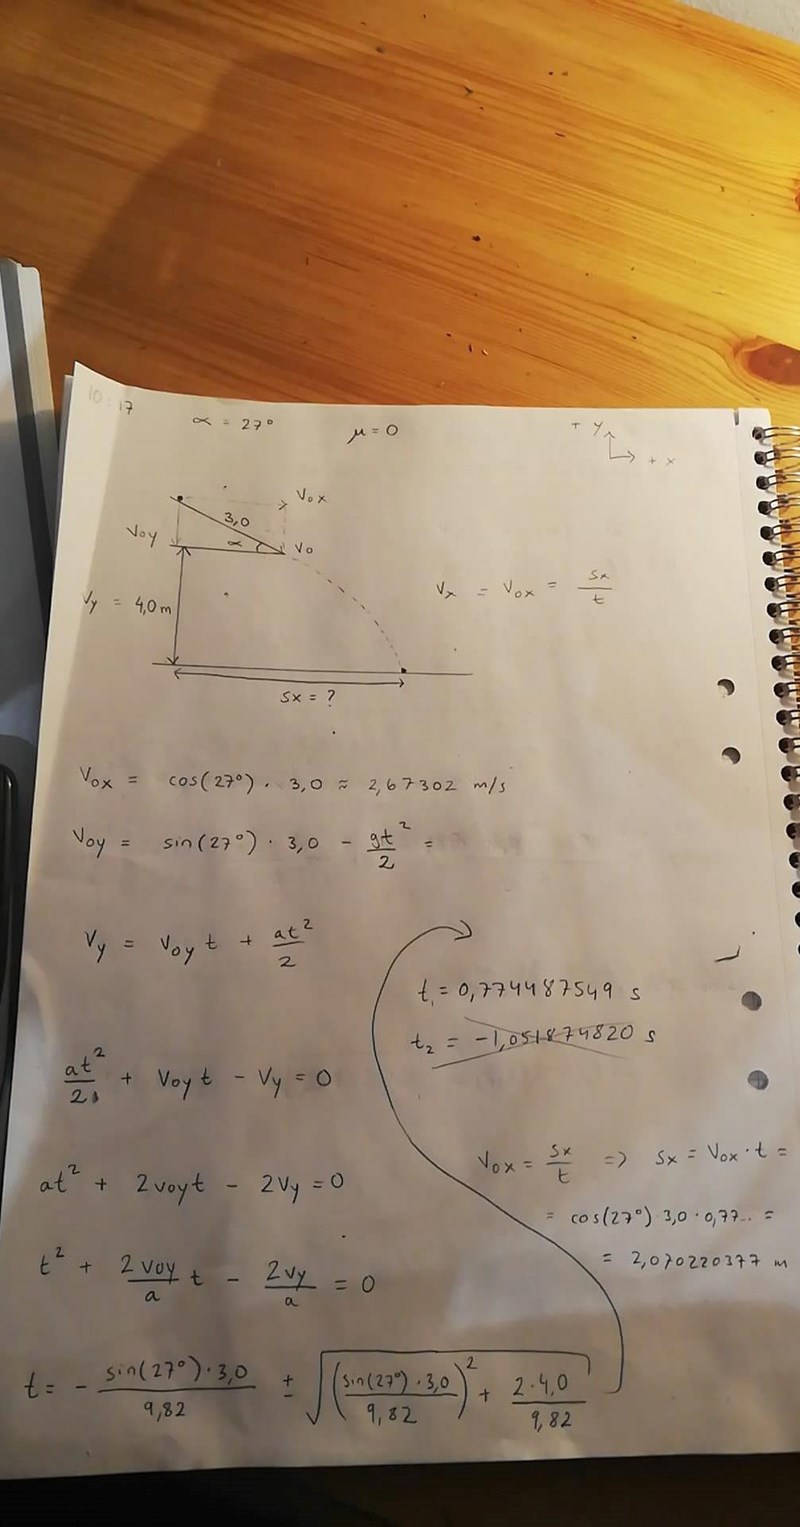 10:17
α = 27° μ = 0 + y + x
V0x
3,0
V0y α V0
Vy = 4,0m Vx = V0x = sx/t
sx = ?
V0x = cos(27°) · 3,0 ≈ 2,67302 m/s
V0y = sin(27°) · 3,0 - gt²/2 =
Vy = V0y t + at²/2
t₁ = 0,774487549 s
t₂ = -1,051874820 s
at²/2 + V0y t - Vy = 0
V0x = sx/t => sx = V0x · t =
at² + 2v0yt - 2Vy = 0
= cos(27°) 3,0 · 0,77.. =
= 2,070220377 m
t² + 2v0y/a t - 2vy/a = 0
t = - sin(27°)·3,0/9,82 ± √((sin(27°)·3,0/9,82)² + 2·4,0/9,82)